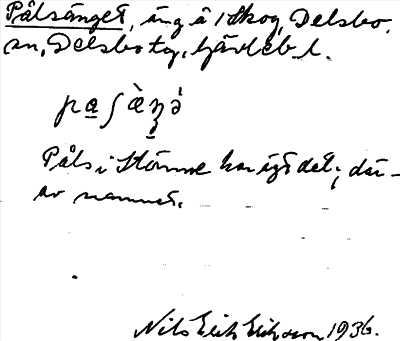 Pålsänget, äng å i Skog, Delsbo
sn, Delsbo tg, Gävleb. l.
pa̲ʃæ̀ŋ̲ə̀
Påls i Stömne har ägt det; där-
av namnet.
Nils Erik Eriksson 1936.